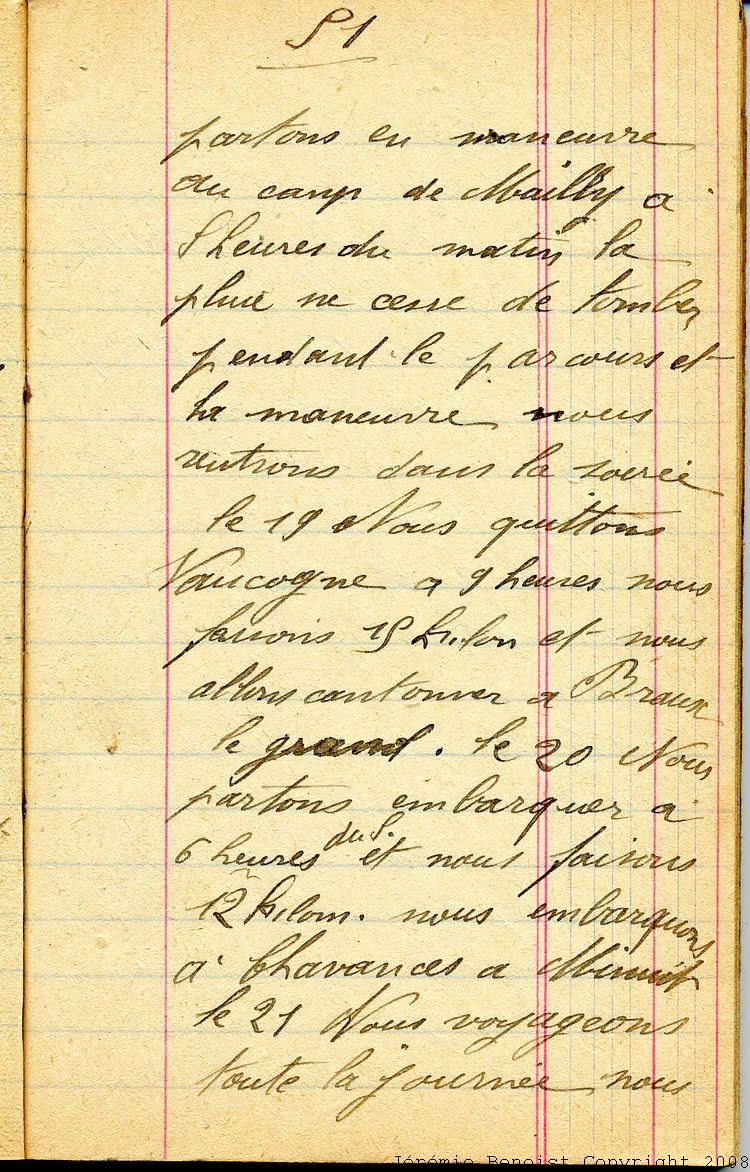 51
partons en maneuvre
au camp de Mailly a
5 heures du matin la
pluie ne cesse de tomber
pendant le parcours et
la maneuvre nous
rentrons dans la soirée
le 19 Nous quittons
Vaucogne a 9 heures nous
faisons 15 kilom et nous
allons cantonner a Braux
le grand. le 20 Nous
partons embarquer a
6 heures du S. et nous faisons
12 kilom. nous embarquons
a Chavances a Minuit
le 21 Nous voyageons
toute la journée nous
Jérémie Benoist Copyright 2008